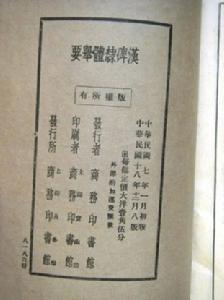 漢碑隸體舉要
版權所有
中華民國七年一月初版
中華民國十八年三月八版
每册定價大洋壹角伍分
外埠酌加運費匯費
發行者 商務印書館
印刷者 商務印書館
發行所 商務印書館